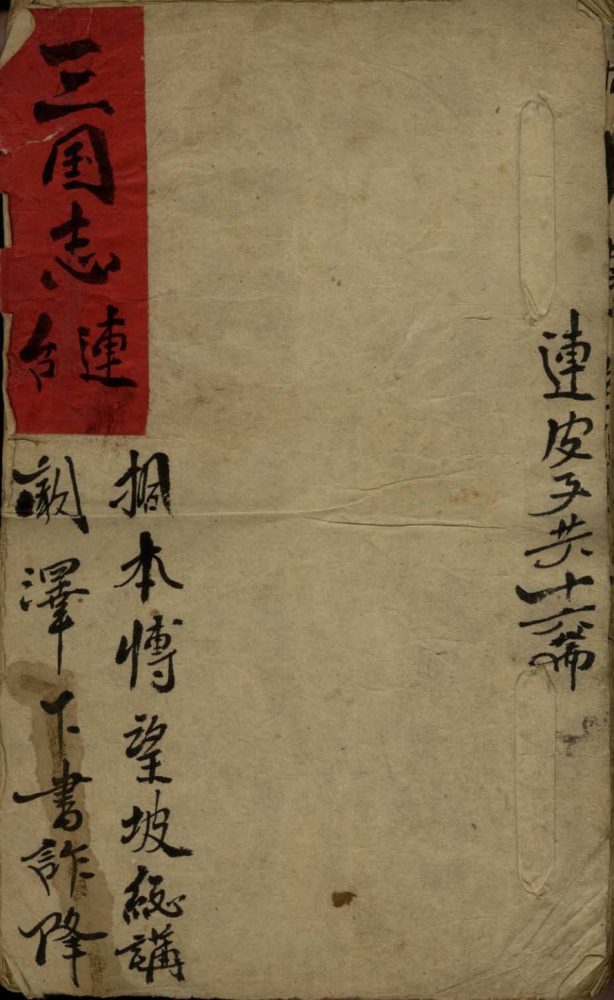 連皮子共十六篇
三国志
連台
捆本博望坡総講
闞澤下書詐降